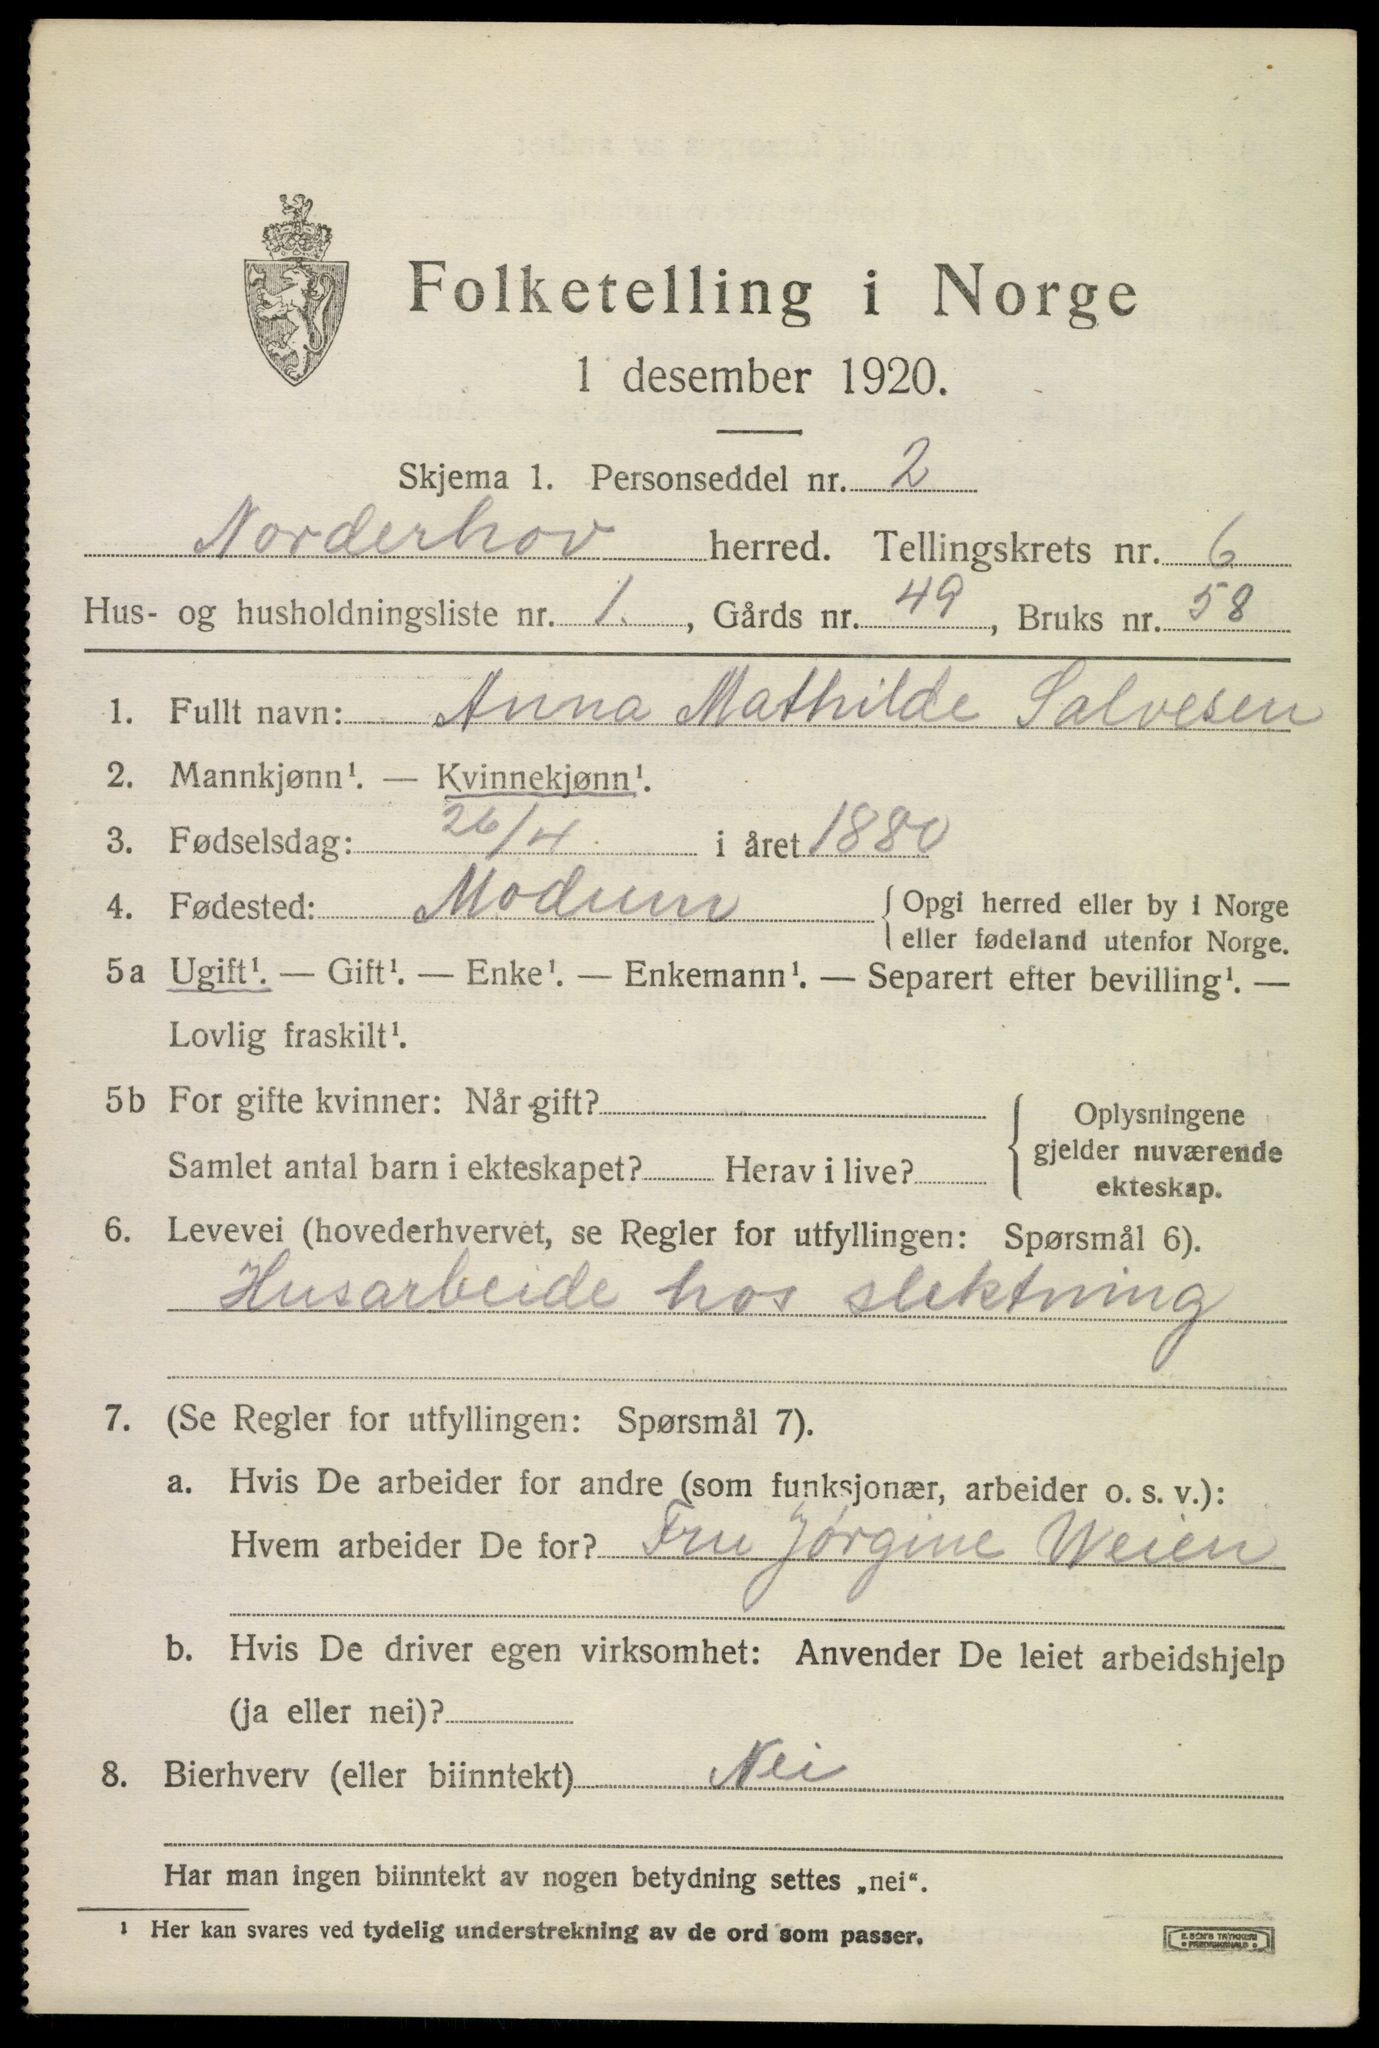 Folketelling i Norge
1 desember 1920.
Skjema 1. Personseddel nr. 2
Norderhov herred. Tellingskrets nr. 6
Hus- og husholdningsliste nr. 1. , Gårds nr. 49, Bruks nr. 58
1. Fullt navn: Anna Mathilde Salvesen
2. Mannkjønn¹. — Kvinnekjønn¹.
3. Fødselsdag: 26/4 i året 1880
4. Fødested: Modum { Opgi herred eller by i Norge
eller fødeland utenfor Norge.
5a Ugift¹. — Gift¹. — Enke¹. — Enkemann¹. — Separert efter bevilling¹. —
Lovlig fraskilt¹.
5b For gifte kvinner: Når gift?
Samlet antal barn i ekteskapet? Herav i live?
{ Oplysningene
gjelder nuværende
ekteskap.
6. Levevei (hovederhvervet, se Regler for utfyllingen: Spørsmål 6).
Husarbeide hos slektning
7. (Se Regler for utfyllingen: Spørsmål 7).
a. Hvis De arbeider for andre (som funksjonær, arbeider o. s. v.):
Hvem arbeider De for? Fru Jørgine Weien
b. Hvis De driver egen virksomhet: Anvender De leiet arbeidshjelp
(ja eller nei)?
8. Bierhverv (eller biinntekt) Nei
Har man ingen biinntekt av nogen betydning settes „nei“.
¹ Her kan svares ved tydelig understrekning av de ord som passer.